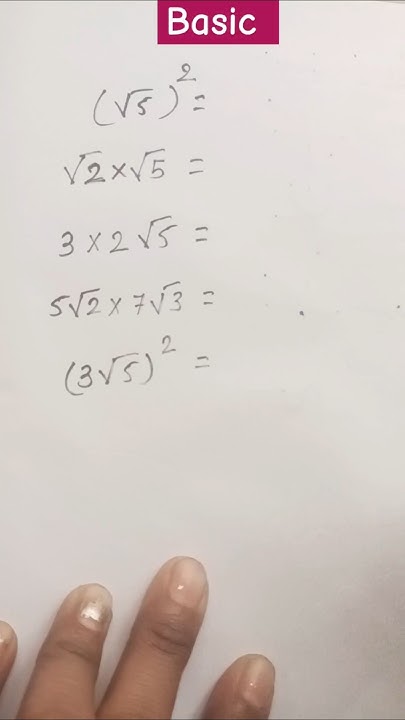 Basic
(√5)² =
√2 × √5 =
3 × 2√5 =
5√2 × 7√3 =
(3√5)² =